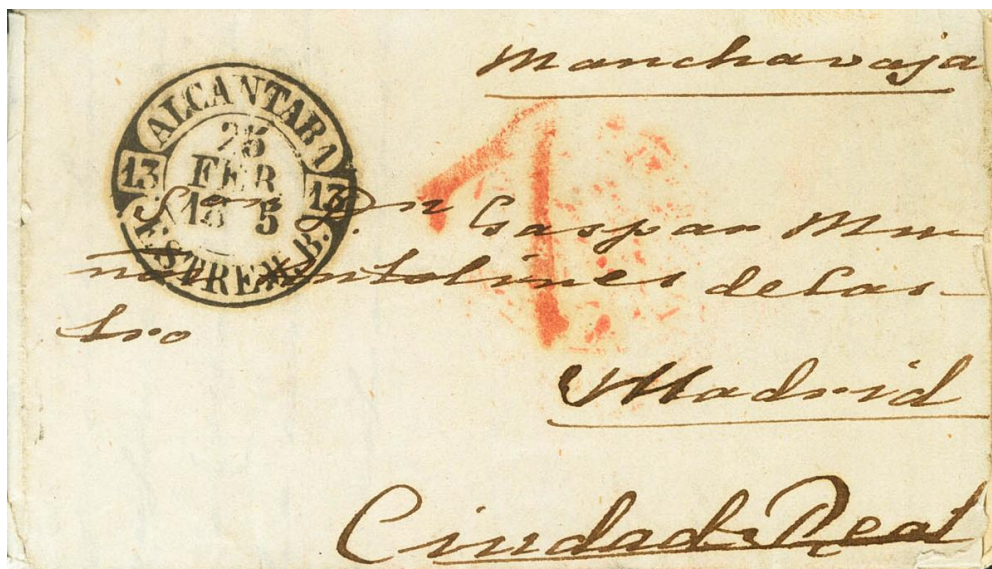 Manchavaja
ALCANTARA
25
FEB.
18 5
13 13
ESTREM.B.
1
Sor. Dn Gaspar Mu
ñoz Antolines de Cas-
tro
Madrid
Ciudad Real